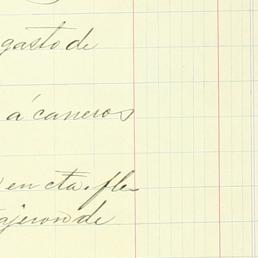 gasto de
á caneros
en cta. fle-
ajeron de